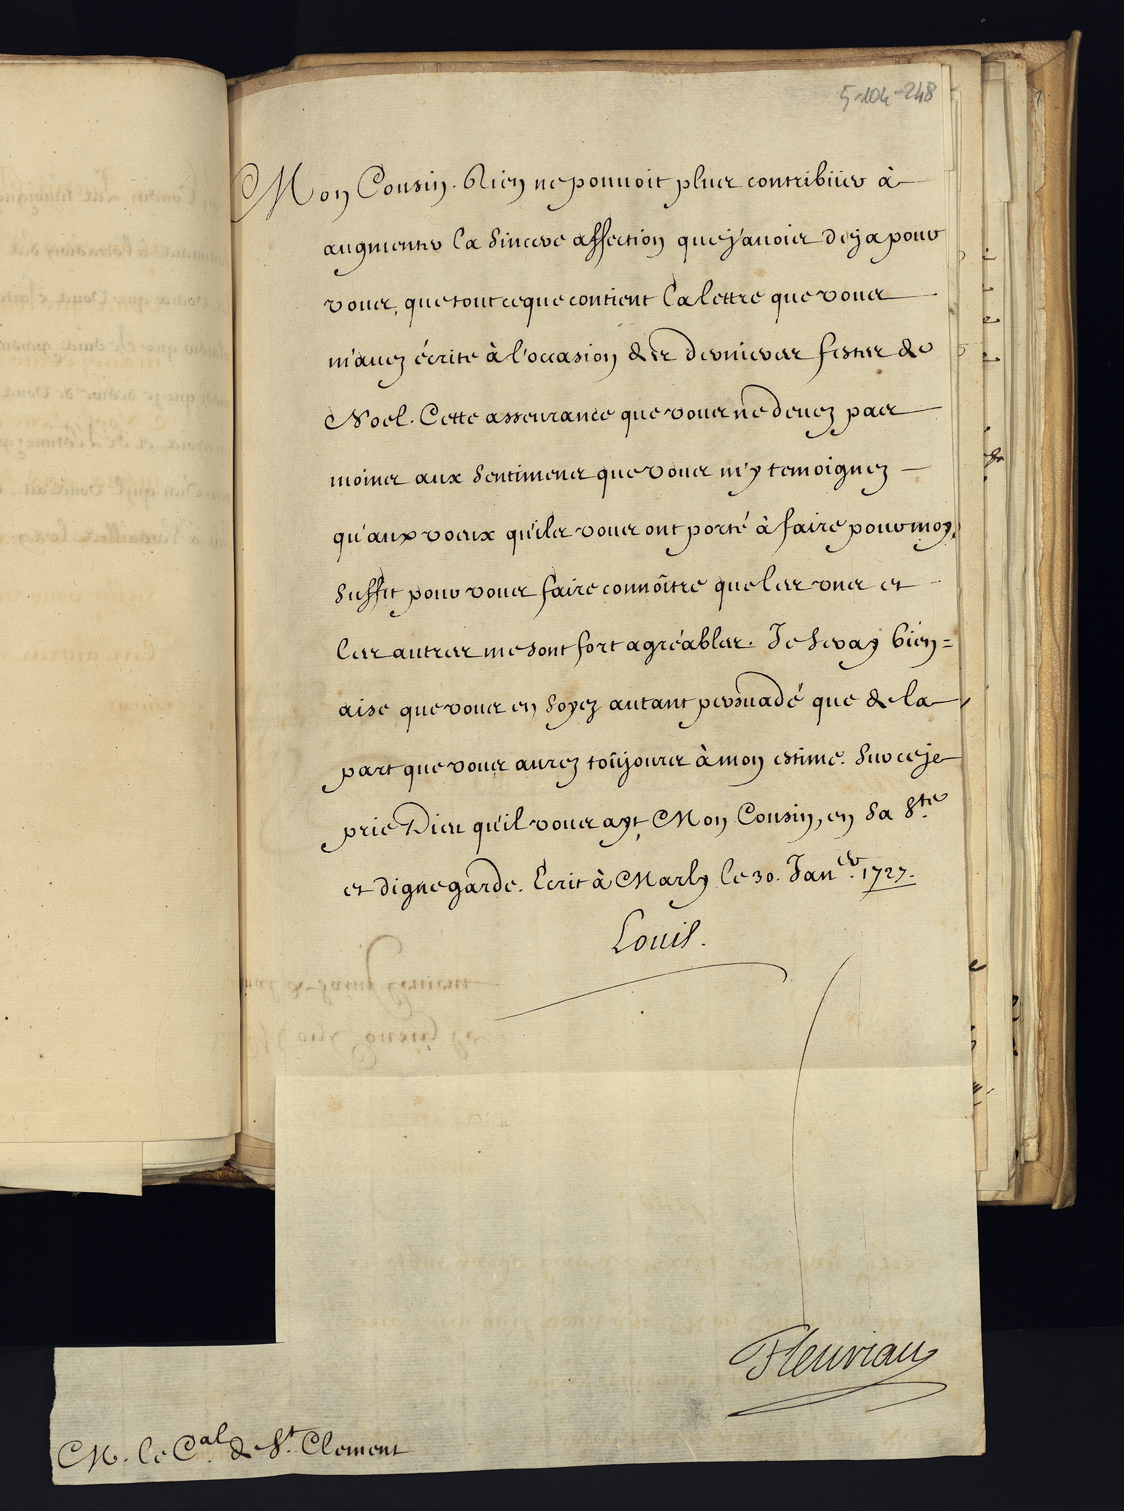 5-104-248
Mon Cousin. Rien ne pouvoit plus contribüer à
augmenter la sincere affection que j'avois deja pour
vous, que tout ce que contient la lettre que vous
m'avez écrite à l'occasion des dernieres festes de
Noel. Cette asseurance que vous ne devez pas
moins aux sentimens que vous m'y temoignez
qu'aux voeux qu'ils vous ont porté à faire pour moy,
suffit pour vous faire connoître que les uns et
les autres me sont fort agréables. Je seray bien=
aise que vous en soyez autant persuadé que de la
part que vous aurez toûjours à mon estime. Sur ce je
prie Dieu qu'il vous ayt, Mon Cousin, en sa Ste
et digne garde. Ecrit à Marly le 30. Janer. 1727.
Louis.
Fleuriau
M. le Cal. de St. Clement